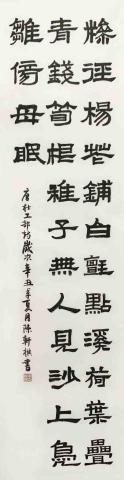 糝徑楊花鋪白氈點溪荷葉疊
青錢筍根稚子無人見沙上鳧
雛傍母眠
唐杜工部詩歲次辛丑年夏月陳軒書